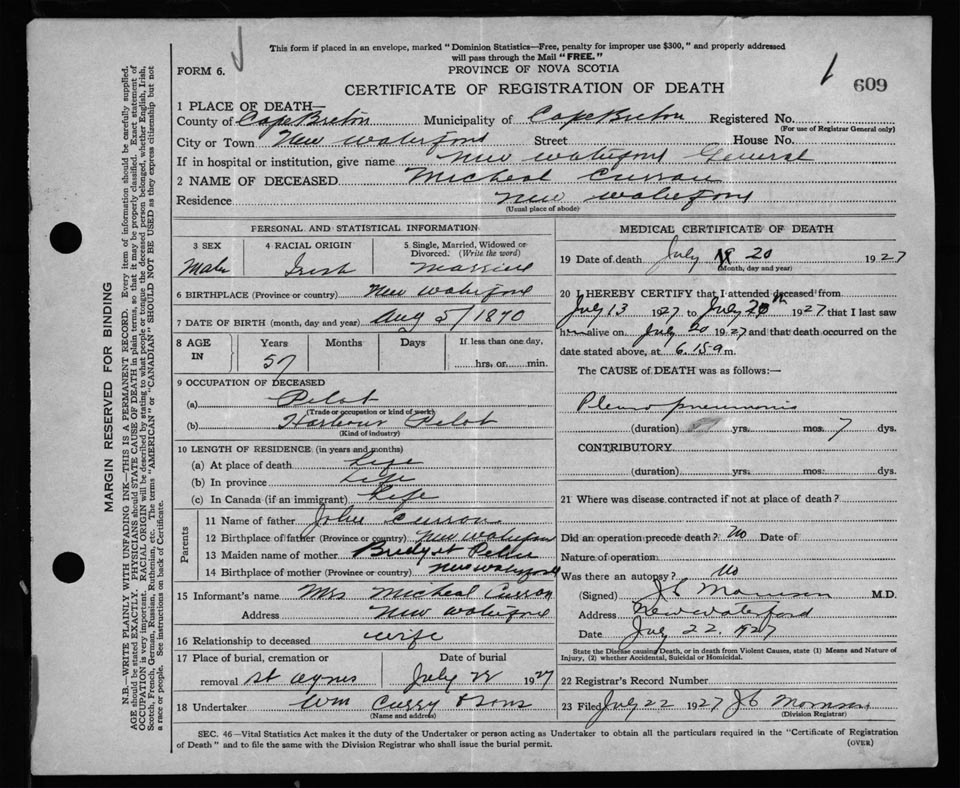 This form if placed in an envelope, marked "Dominion Statistics—Free, penalty for improper use $300," and properly addressed
will pass through the Mail "FREE."
FORM 6.
PROVINCE OF NOVA SCOTIA
609
CERTIFICATE OF REGISTRATION OF DEATH
1 PLACE OF DEATH—
County of Cape Breton Municipality of Cape Breton Registered No.
(For use of Registrar General only)
City or Town New Waterford Street House No.
If in hospital or institution, give name New Waterford General
2 NAME OF DECEASED Micheal Curran
Residence New Waterford
(Usual place of abode)
PERSONAL AND STATISTICAL INFORMATION
3 SEX 4 RACIAL ORIGIN 5 Single, Married, Widowed or
Divorced. (Write the word)
Male Irish Married
6 BIRTHPLACE (Province or country) New Waterford
7 DATE OF BIRTH (month, day and year) Aug 5/1870
8 AGE IN Years Months Days If less than one day,
57 hrs. or min.
9 OCCUPATION OF DECEASED
(a) Pilot
(Trade or occupation or kind of work)
(b) Harbour Pilot
(Kind of industry)
10 LENGTH OF RESIDENCE (in years and months)
(a) At place of death Life
(b) In province Life
(c) In Canada (if an immigrant) Life
Parents
11 Name of father John Curran
12 Birthplace of father (Province or country) New Waterford
13 Maiden name of mother Bridget
14 Birthplace of mother (Province or country) New Waterford
15 Informant's name Mrs Micheal Curran
Address New Waterford
16 Relationship to deceased wife
17 Place of burial, cremation or Date of burial
removal St Agnes July 22 1927
18 Undertaker Wm Curry & Sons
(Name and address)
MEDICAL CERTIFICATE OF DEATH
19 Date of death July 20 1927
(Month, day and year)
20 I HEREBY CERTIFY that I attended deceased from
July 13 1927 to July 20th 1927 that I last saw
him alive on July 20 1927 and that death occurred on
date stated above, at 6.15 a m.
The CAUSE of DEATH was as follows:—
Pleuro pneumonia
(duration) yrs. mos. 7 dys.
CONTRIBUTORY
(duration) yrs. mos. dys.
21 Where was disease contracted if not at place of death?
Did an operation precede death? No Date of
Nature of operation
Was there an autopsy? No
(Signed) J C Morrison M.D.
Address New Waterford
Date July 22. 1927
State the Disease causing Death, or in death from Violent Causes, state (1) Means and Nature of
Injury, (2) whether Accidental, Suicidal or Homicidal.
22 Registrar's Record Number
23 Filed July 22 1927 J C Morrison
(Division Registrar)
SEC. 46—Vital Statistics Act makes it the duty of the Undertaker or person acting as Undertaker to obtain all the particulars required in the "Certificate of Registration
of Death" and to file the same with the Division Registrar who shall issue the burial permit.
(OVER)
MARGIN RESERVED FOR BINDING
N.B.—WRITE PLAINLY WITH UNFADING INK—THIS IS A PERMANENT RECORD. Every item of information should be carefully supplied.
AGE should be stated EXACTLY. PHYSICIANS should STATE CAUSE OF DEATH in plain terms, so that it may be properly classified. Exact statement of
OCCUPATION is very important. RACIAL ORIGIN will be described by stating to what people or tongue the deceased person belonged, whether English, Irish,
Scotch, French, German, Russian, Ruthenian, etc. The terms "AMERICAN" or "CANADIAN" SHOULD NOT BE USED as they express citizenship but not
a race or people. See instructions on back of Certificate.